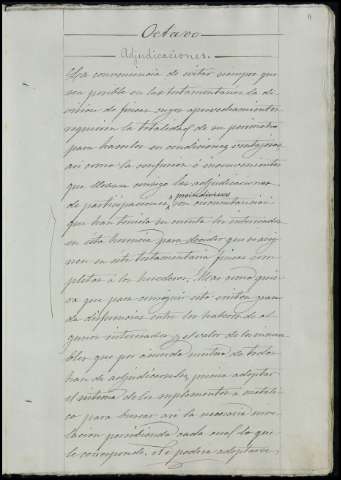 Octavo
Adjudicaciones.
La conveniencia de evitar siempre que
sea posible en las testamentarias la di-
vision de fincas cuyos aprovechamientos
requieren la totalidad de su perimetro
para hacerlos en condiciones ventajosas
asi como la confusion é inconvenientes
que llevan consigo las adjudicaciones
de participaciones proindiviso son circunstancias
que han tenido en cuenta los interesados
en esta herencia para decidir que se asig-
nen en esta testamentaria fincas com-
pletas á los herederos. Mas como quie-
ra que para conseguir esto existen gran-
des diferencias entre los haberes de al-
gunos interesados y el valor de los inmue-
bles que por acuerdo mutuo de todos
han de adjudicarseles, precisa adoptar
el sistema de los suplementos á metali-
co para buscar asi la necesaria nive-
lacion percibiendo cada cual lo que
le corresponde. Se podria adoptarse